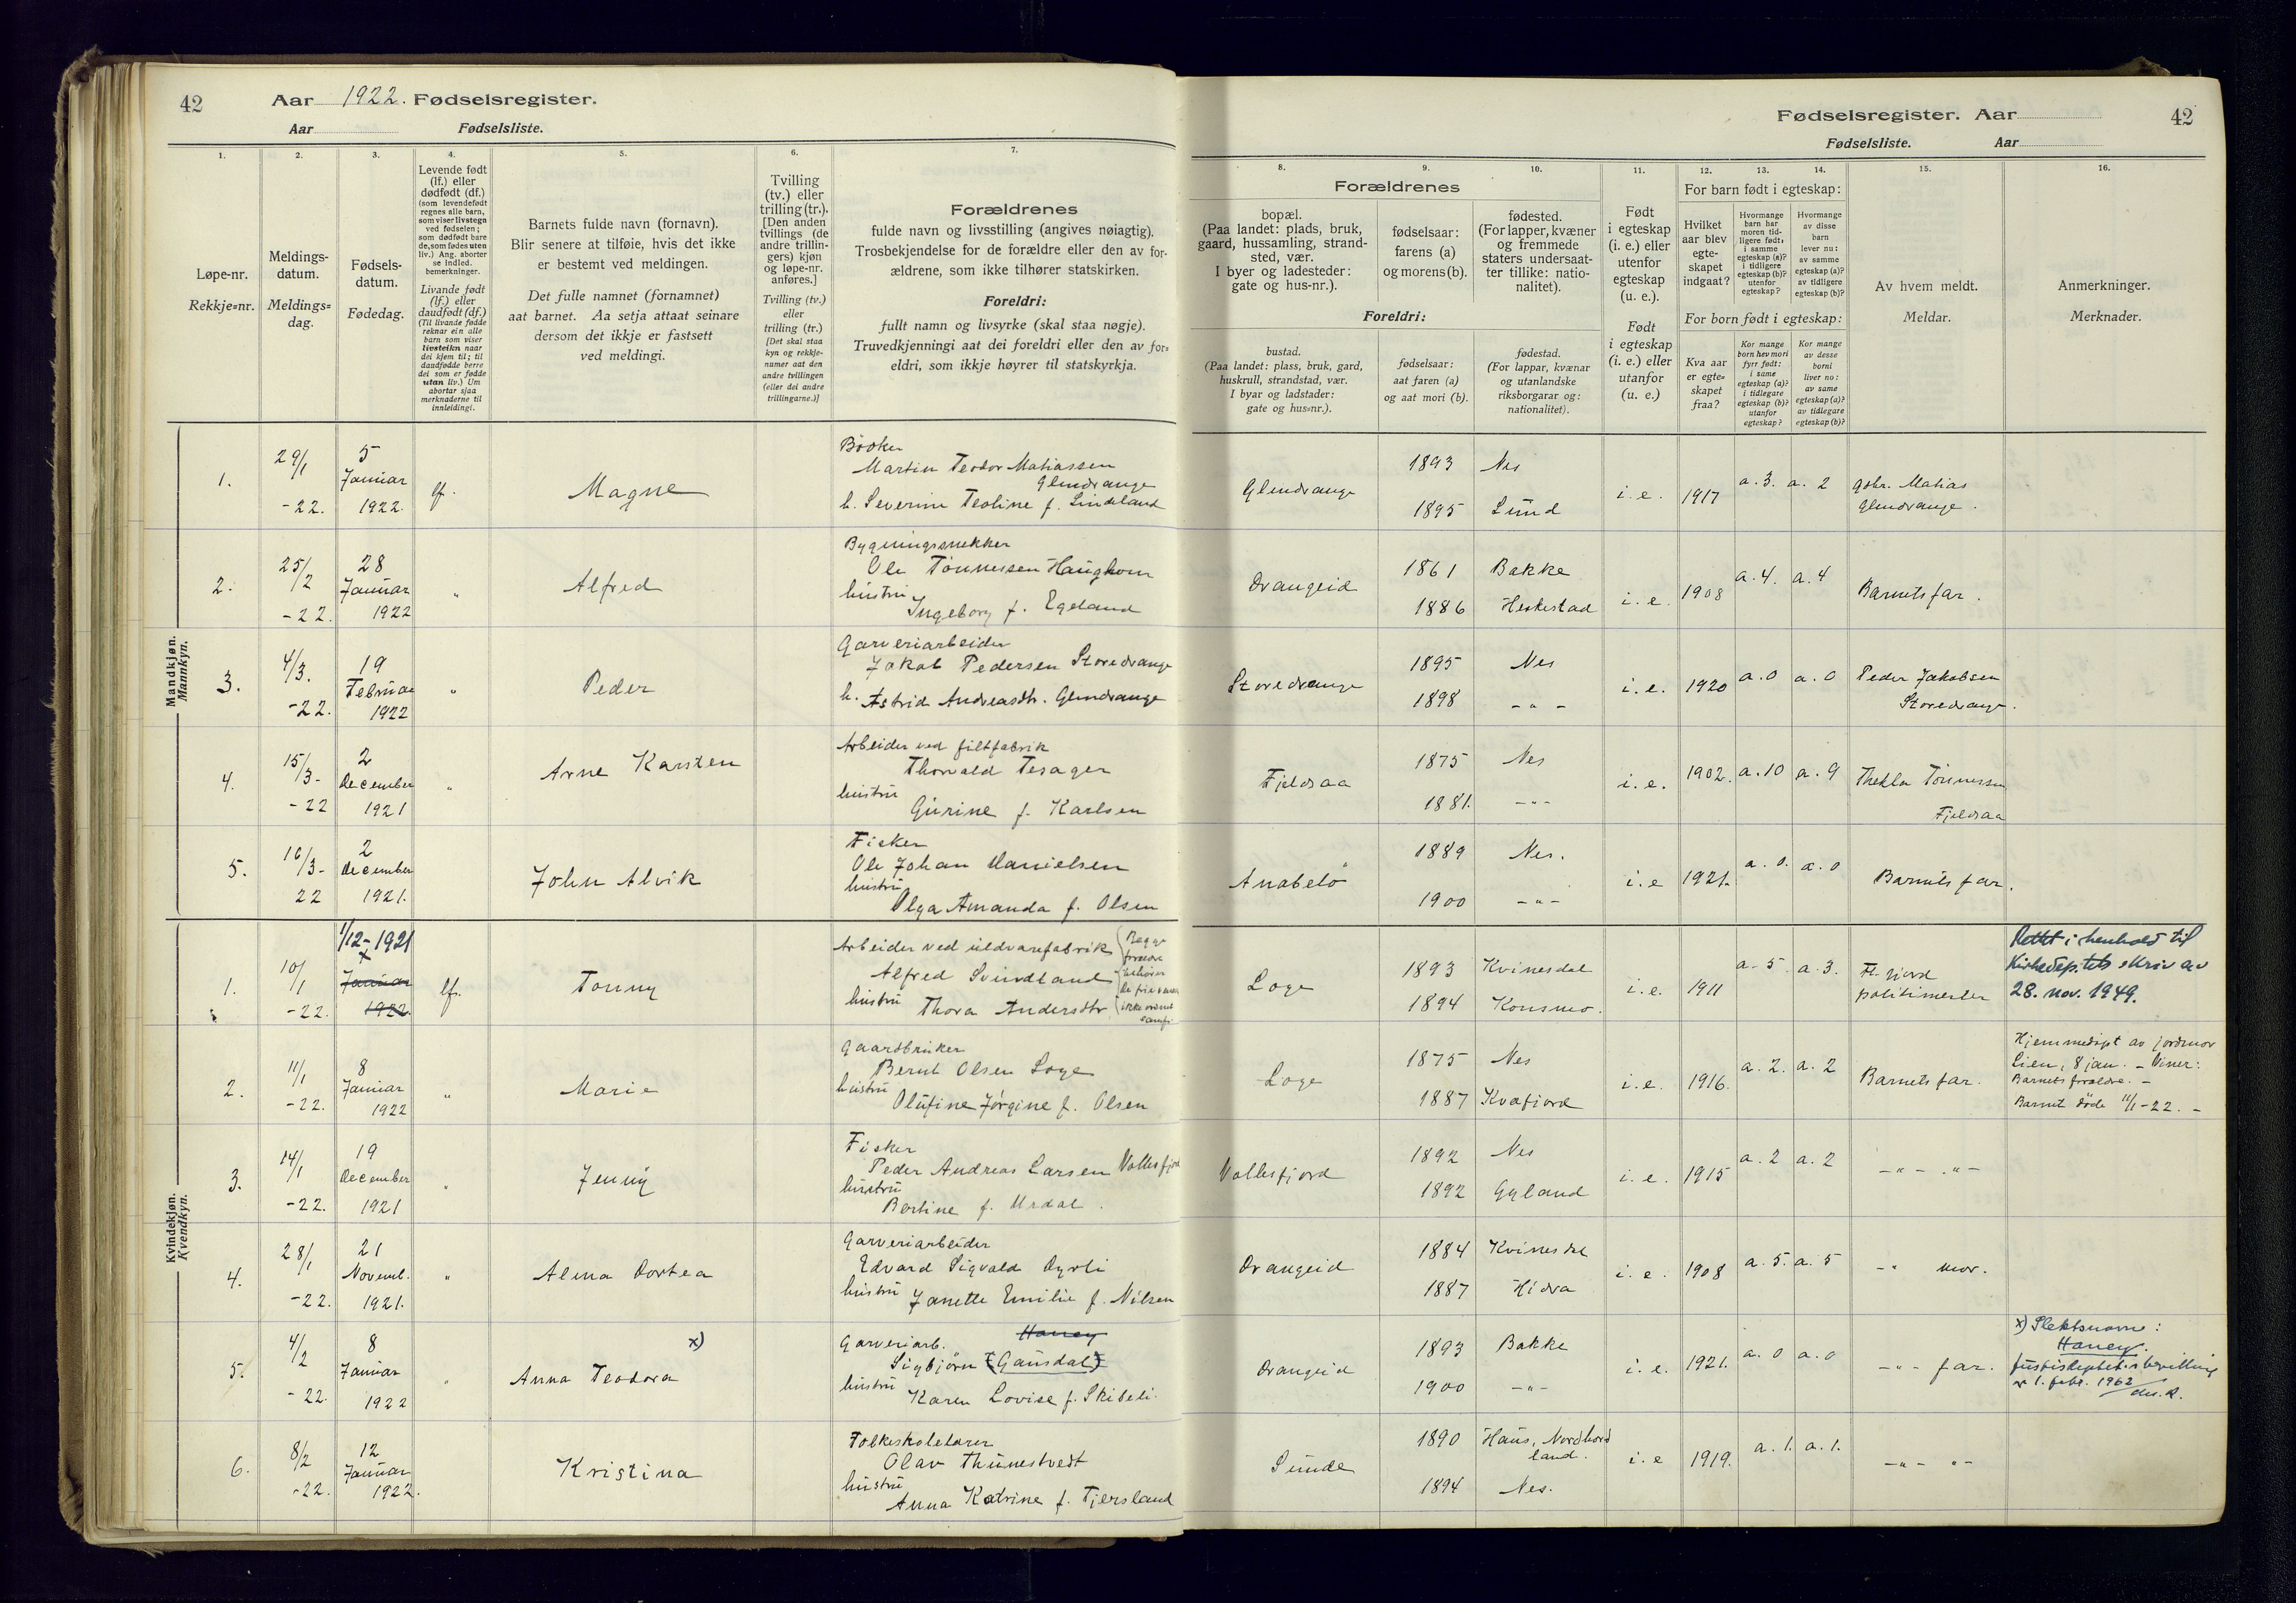 42 Aar 1922. Fødselsregister.
Aar Fødselsliste.
1. 2. 3. 4. 5. 6. 7.
Løpe-nr.
Rekkje=nr.
Meldings-
datum.
Meldings=
dag.
Fødsels-
datum.
Fødedag.
Levende født
(lf.) eller
dødfødt (df.)
(som levendefødt
regnes alle barn,
som viser livstegn
ved fødselen;
som dødfødt bare
de, som fødes uten
liv.) Ang. aborter
se indled.
bemerkninger.
Livande født
(lf.) eller
daudfødt (df.)
(Til livande fødde
reknar ein alle
barn som viser
livsteikn naar
dei kjem til; til
daudfødde berre
dei som er fødde
utan liv.) Um
abortar sjaa
merknaderne til
innleidingi.
Barnets fulde navn (fornavn).
Blir senere at tilføie, hvis det ikke
er bestemt ved meldingen.
Det fulle namnet (fornamnet)
aat barnet. Aa setja attaat seinare
dersom det ikkje er fastsett
ved meldingi.
Tvilling
(tv.) eller
trilling (tr.).
[Den anden
tvillings (de
andre trillin-
gers) kjøn
og løpe-nr.
anføres.]
Tvilling (tv.)
eller
trilling (tr.)
[Det skal staa
kyn og rekkje-
numer aat den
andre tvillingen
(eller dei andre
trillingarne.)]
Forældrenes
fulde navn og livsstilling (angives nøiagtig).
Trosbekjendelse for de forældre eller den av for-
ældrene, som ikke tilhører statskirken.
Foreldri:
fullt namn og livsyrke (skal staa nøgje).
Truvedkjenningi aat dei foreldri eller den av for=
eldri, som ikkje høyrer til statskyrkja.
Mandkjøn.
Mannkyn.
1. 29/1 -22. 5 Januar 1922. lf. Magne
Bødker
Martin Teodor Matiassen
Glendrange
h. Severine Teoline f. Lindeland
2. 25/2 -22. 28 Januar 1922 " Alfred
Bygningssnekker
Ole Tønnessen Haughom
hustru
Ingeborg f. Egeland
3. 4/3. -22. 19 Februar 1922 " Peder
Garveriarbeider
Jakob Pedersen Storedrange
h. Astrid Andreasdtr. Glendrange
4. 15/3- -22 2 December 1921 " Arne Karsten
Arbeider ved filtfabrik
Thorvald Tesager
hustru
Gurine f. Karlsen
5. 16/3- 22 2 December 1921. John Alvik
Fisker
Ole Johan Danielsen
hustru
Olga Amanda f. Olsen
Kvindekjøn.
Kvendkyn.
1. 10/1 -22. 1/12-1921 x Januar 1922. lf. Tonny
Arbeider ved uldvarefabrik
Alfred Svindland
hustru
Thora Andersdtr
Begge
2. 11/1 -22. 8 Januar 1922 " Marie
Gaardbruker
Bernt Olsen Loge
hustru
Olufine Jørgine f. Olsen
3. 14/1 -22. 19 December 1921 " Jenny
Fisker
Peder Andreas Larsen Vollesfjord
hustru
Bertine f. Urdal.
4. 28/1 -22. 21 Novemb. 1921. " Alma Dortea
Garveriarbeider
Edvard Sigvald Dyrli
hustru Janette Emilie f. Nilsen
5. 4/2 -22. 8 Januar 1922 " Anna Teodora x)
Garveriarb. Haney
Sigbjørn (Gausdal)
hustru
Karen Lovise f. Skibeli.
6. 8/2 -22. 12 Januar 1922. Kristina
Folkeskolelærer
Olav Thunestvedt
hustru
Anna Katrine f. Tjersland
Fødselsregister. Aar 42
Fødselsliste. Aar
8. 9. 10. 11. 12. 13. 14. 15. 16.
Forældrenes
bopæl.
(Paa landet: plads, bruk,
gaard, hussamling, strand-
sted, vær.
I byer og ladesteder:
gate og hus-nr.).
fødselsaar:
farens (a)
og morens (b).
fødested.
(For lapper, kvæner
og fremmede
staters undersaat-
ter tillike: natio-
nalitet).
Foreldri:
bustad.
(Paa landet: plass, bruk, gard,
huskrull, strandstad, vær.
I byar og ladstader:
gate og hus=nr.).
fødselsaar:
aat faren (a)
og aat mori (b).
fødestad.
(For lappar, kvænar
og utanlandske
riksborgarar og:
nationalitet).
Født
i egteskap
(i. e.) eller
utenfor
egteskap
(u. e.).
Født
i egteskap
(i. e.) eller
utanfor
(u. e.)
For barn født i egteskap:
Hvilket
aar blev
egte-
skapet
indgaat?
Hvormange
barn har
moren tid-
ligere født:
i samme
egteskap (a)?
i tidligere
egteskap (b)?
utenfor
egteskap?
Hvormange
av disse
barn
lever nu:
av samme
egteskap (a)?
av tidligere
egteskap (b)?
For born født i egteskap:
Kva aar
er egte=
skapet
fraa?
Kor mange
born hev mori
fyrr født:
i same
egteskap (a)?
i tidlegare
egteskap (b)?
utanfor
egteskap?
Kor mange
av desse
borni
liver no:
av same
egteskap (a)?
av tidlegare
egteskap (b)?
Av hvem meldt.
Meldar.
Anmerkninger.
Merknader.
Glendrange 1893 Nes
1895 Lund i. e. 1917 a. 3. a. 2 gbr. Matias
Glendrange.
Drangeid 1861 Bakke
1886 Heskestad i. e. 1908 a. 4. a. 4 Barnets far.
Storedrange 1895 Nes
1898 -"- i. e. 1920 a. 0 a. 0 Peder Jakobsen
Storedrange.
Fjeldsaa 1875 Nes
1881. -"- i. e. 1902. a. 10 a. 9 Thekla Tønnessen
Fjeldsaa
Anabelø 1889 Nes.
1900 -"- i. e 1921. a. 0. a. 0 Barnets far.
Loge 1893 Kvinesdal
1894 Konsmo. i. e. 1911 a. 5. a. 3. Fl. fjord
politimester
Rettet i henhold til
Kirkedep.tets skriv av
28. nov. 1949.
Loge 1875 Nes
1887 Kvæfjord i. e. 1916. a. 2. a. 2 Barnets far.
Hjemmedøpt av jordmor
Lien, 8 jan. - Vitner:
Barnets forældre. -
Barnet døde 11/1-22. -
Vollesfjord 1892 Nes
1892 Gyland i. e. 1915 a. 2 a. 2 -"- -"-
Drangeid 1884 Kvinesdal
1887 Hidra i. e. 1908 a. 5. a. 5 -" mor.
Drangeid 1893 Bakke
1900 -"- i. e. 1921. a. 0 a. 0 -"- far.
x) Slektsnavn:
Haney.
Justisdeptet.s bevilling
av 1. febr. 1962
Sunde 1890 Haus, Nordhord
land.
1894 Nes. i. e 1919. a. 1. a. 1. -"- "-